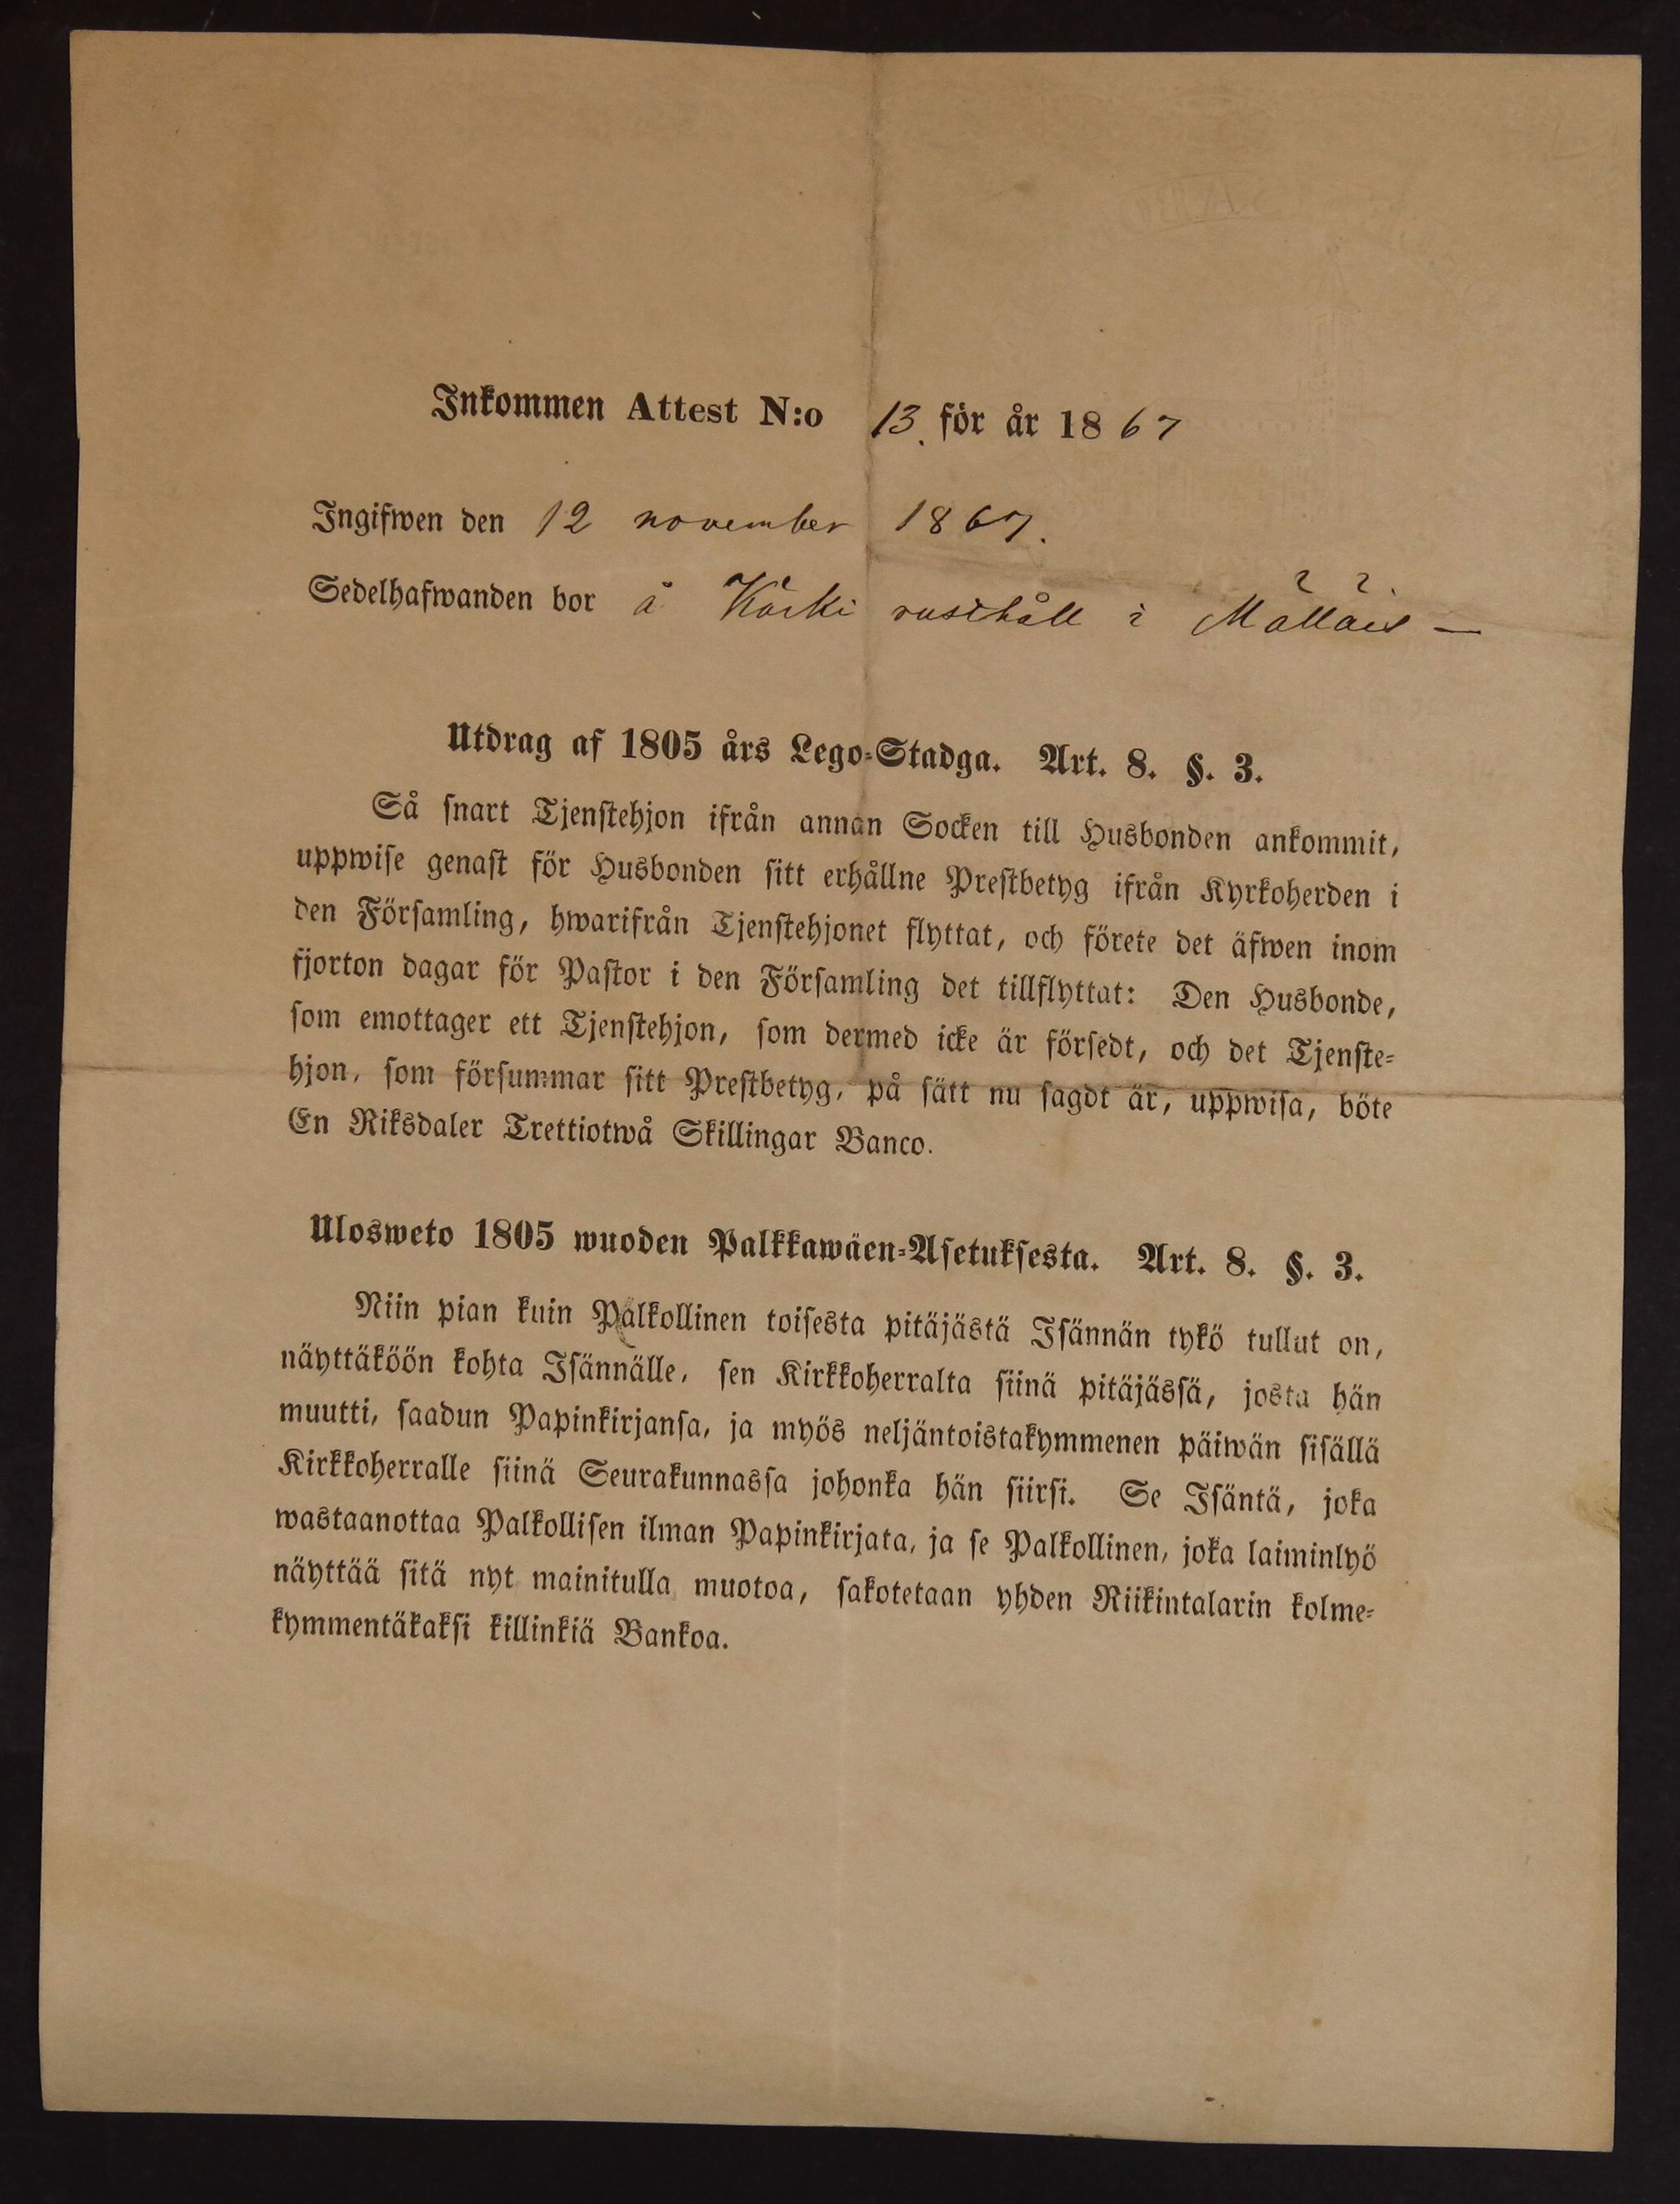 Inkommen Attest N:o 13. för år 1867
Ingifwen den 12 november 1867.
Sedelhafwanden bor å Kärki rusthåll i Mälläis —
Utdrag af 1805 års Lego-Stadga. Art. 8. §. 3.
Så snart Tjenstehjon ifrån annan Socken till Husbonden ankommit,
uppwise genast för Husbonden sitt erhållne Prestbetyg ifrån Kyrkoherden i
den Församling, hwarifrån Tjenstehjonet flyttat, och förete det äfwen inom
fjorton dagar för Pastor i den Församling det tillflyttat: Den Husbonde,
som emottager ett Tjenstehjon, som dermed icke är försedt, och det Tjenste-
hjon, som försummar sitt Prestbetyg, på sätt nu sagdt är, uppwisa, böte
En Riksdaler Trettiotwå Skillingar Banco.
Ulosweto 1805 wuoden Palkkawäen-Asetuksesta. Art. 8. §. 3.
Niin pian kuin Palkollinen toisesta pitäjästä Isännän tykö tullut on,
näyttäköön kohta Isännälle, sen Kirkkoherralta siinä pitäjässä, josta hän
muutti, saadun Papinkirjansa, ja myös neljäntoistakymmenen päiwän sisällä
Kirkkoherralle siinä Seurakunnassa johonka hän siirsi. Se Isäntä, joka
wastaanottaa Palkollisen ilman Papinkirjata, ja se Palkollinen, joka laiminlyö
näyttää sitä nyt mainitulla muotoa, sakotetaan yhden Riikintalarin kolme-
kymmentäkaksi killinkiä Bankoa.